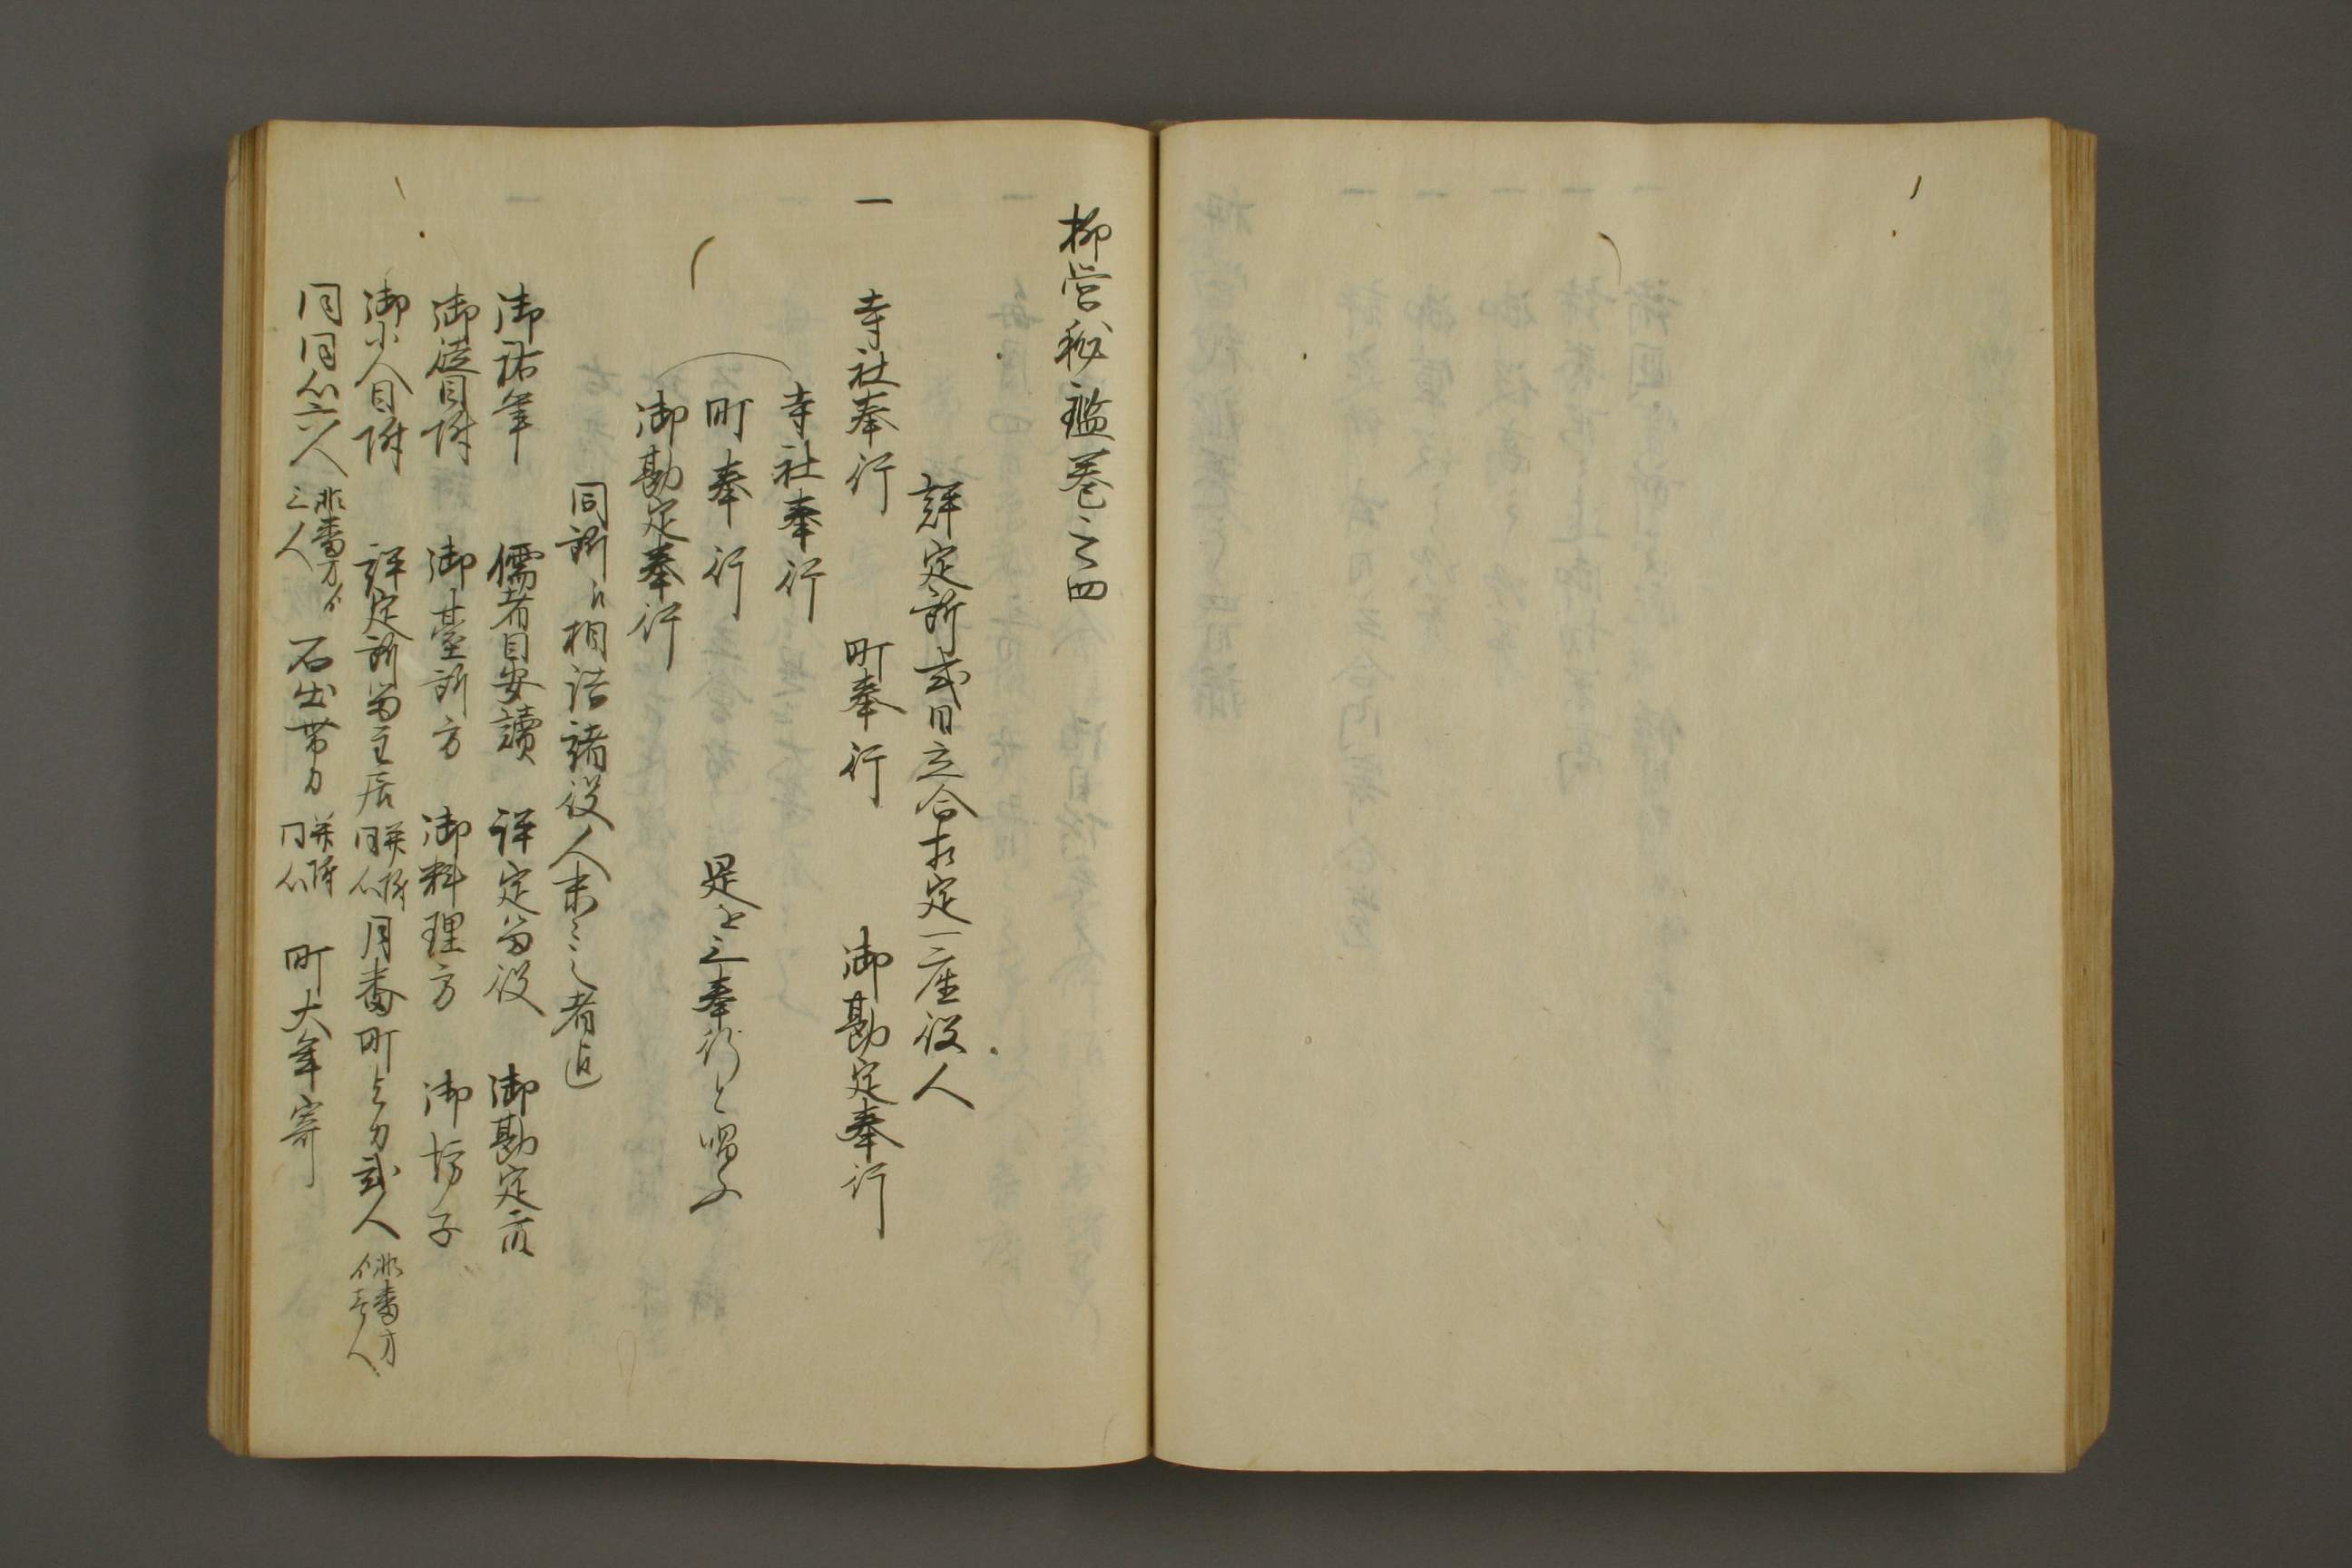 柳営秘鑑巻之四
評定所式日立合相定一座役人
一 寺社奉行 町奉行 御勘定奉行
寺社奉行
町奉行 是を三奉行と唱ふ
御勘定奉行
同所江相詰諸役人末々之者迄
御祐筆 儒者目安讀 評定留役 御勘定衆
御徒目附 御臺所方 御料理方 御坊子
御小人目附 評定所留主居 并隊同心 月番町与力弐人 非番方ゟ壱人
同同心六人 非番方ゟ三人 石出帯刀 并隊同心 町大年寄